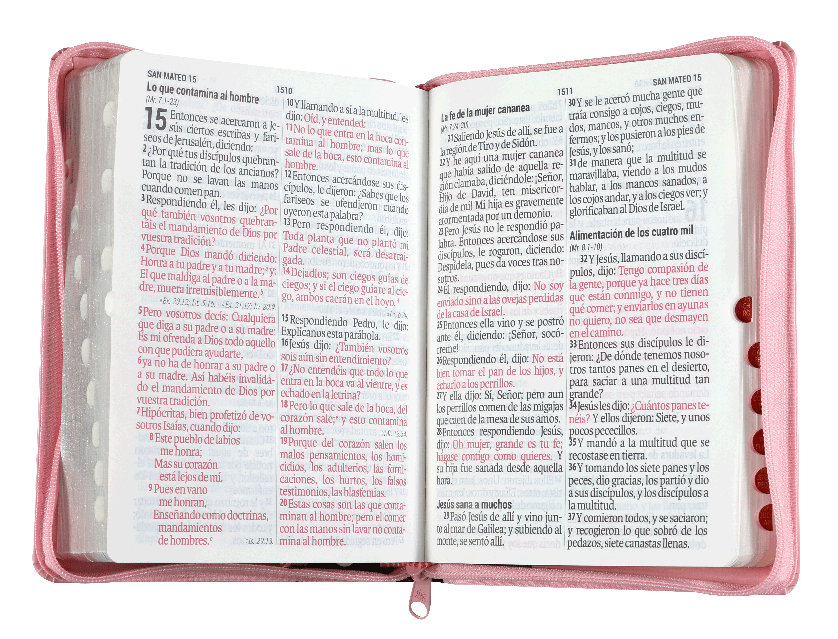 SAN MATEO 15
1510
Lo que contamina al hombre
(Mr. 7.1-23)
15 Entonces se acercaron a Je-
sús ciertos escribas y fari-
seos de Jerusalén, diciendo:
2 ¿Por qué tus discípulos quebran-
tan la tradición de los ancianos?
Porque no se lavan las manos
cuando comen pan.
3 Respondiendo él, les dijo: ¿Por
qué también vosotros quebran-
táis el mandamiento de Dios por
vuestra tradición?
4 Porque Dios mandó diciendo:
Honra a tu padre y a tu madre; y:
El que maldiga al padre o a la ma-
dre, muera irremisiblemente.
5 Pero vosotros decís: Cualquiera
que diga a su padre o a su madre:
Es mi ofrenda a Dios todo aquello
con que pudiera ayudarte,
6 ya no ha de honrar a su padre o
a su madre. Así habéis invalida-
do el mandamiento de Dios por
vuestra tradición.
7 Hipócritas, bien profetizó de vo-
sotros Isaías, cuando dijo:
8 Este pueblo de labios
me honra;
Mas su corazón
está lejos de mí.
9 Pues en vano
me honran,
Enseñando como doctrinas,
mandamientos
de hombres.
10 Y llamando a sí a la multitud, les
dijo: Oíd, y entended:
11 No lo que entra en la boca con-
tamina al hombre; mas lo que
sale de la boca, esto contamina al
hombre.
12 Entonces acercándose sus dis-
cípulos, le dijeron: ¿Sabes que los
fariseos se ofendieron cuando
oyeron esta palabra?
13 Pero respondiendo él, dijo:
Toda planta que no plantó mi
Padre celestial, será desarrai-
gada.
14 Dejadlos; son ciegos guías de
ciegos; y si el ciego guiare al cie-
go, ambos caerán en el hoyo.
15 Respondiendo Pedro, le dijo:
Explícanos esta parábola.
16 Jesús dijo: ¿También vosotros
sois aún sin entendimiento?
17 ¿No entendéis que todo lo que
entra en la boca va al vientre, y es
echado en la letrina?
18 Pero lo que sale de la boca, del
corazón sale; y esto contamina
al hombre.
19 Porque del corazón salen los
malos pensamientos, los homi-
cidios, los adulterios, las forni-
caciones, los hurtos, los falsos
testimonios, las blasfemias.
20 Estas cosas son las que conta-
minan al hombre; pero el comer
con las manos sin lavar no conta-
mina al hombre.
1511
SAN MATEO 15
La fe de la mujer cananea
(Mr. 7.24-30)
21 Saliendo Jesús de allí, se fue a
la región de Tiro y de Sidón.
22 Y he aquí una mujer cananea
que había salido de aquella re-
gión clamaba, diciéndole: ¡Señor,
Hijo de David, ten misericor-
dia de mí! Mi hija es gravemente
atormentada por un demonio.
23 Pero Jesús no le respondió pa-
labra. Entonces acercándose sus
discípulos, le rogaron, diciendo:
Despídela, pues da voces tras no-
sotros.
24 Él respondiendo, dijo: No soy
enviado sino a las ovejas perdidas
de la casa de Israel.
25 Entonces ella vino y se postró
ante él, diciendo: ¡Señor, socó-
rreme!
26 Respondiendo él, dijo: No está
bien tomar el pan de los hijos, y
echarlo a los perrillos.
27 Y ella dijo: Sí, Señor; pero aun
los perrillos comen de las migajas
que caen de la mesa de sus amos.
28 Entonces respondiendo Jesús,
dijo: Oh mujer, grande es tu fe;
hágase contigo como quieres. Y
su hija fue sanada desde aquella
hora.
Jesús sana a muchos
29 Pasó Jesús de allí y vino jun-
to al mar de Galilea; y subiendo al
monte, se sentó allí.
30 Y se le acercó mucha gente que
traía consigo a cojos, ciegos, mu-
dos, mancos, y otros muchos en-
fermos; y los pusieron a los pies de
Jesús, y los sanó;
31 de manera que la multitud se
maravillaba, viendo a los mudos
hablar, a los mancos sanados, a
los cojos andar, y a los ciegos ver; y
glorificaban al Dios de Israel.
Alimentación de los cuatro mil
(Mr. 8.1-10)
32 Y Jesús, llamando a sus discí-
pulos, dijo: Tengo compasión de
la gente, porque ya hace tres días
que están conmigo, y no tienen
qué comer; y enviarlos en ayunas
no quiero, no sea que desmayen
en el camino.
33 Entonces sus discípulos le di-
jeron: ¿De dónde tenemos noso-
tros tantos panes en el desierto,
para saciar a una multitud tan
grande?
34 Jesús les dijo: ¿Cuántos panes te-
néis? Y ellos dijeron: Siete, y unos
pocos pececillos.
35 Y mandó a la multitud que se
recostase en tierra.
36 Y tomando los siete panes y los
peces, dio gracias, los partió y dio
a sus discípulos, y los discípulos a
la multitud.
37 Y comieron todos, y se saciaron;
y recogieron lo que sobró de los
pedazos, siete canastas llenas.